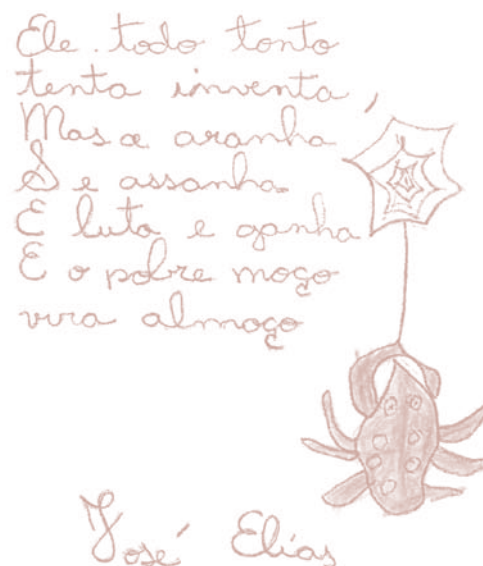 Ele todo tonto
tenta inventa,
Mas a aranha
Se assanha
E luta e ganha
E o pobre moço
vira almoço
José Elias